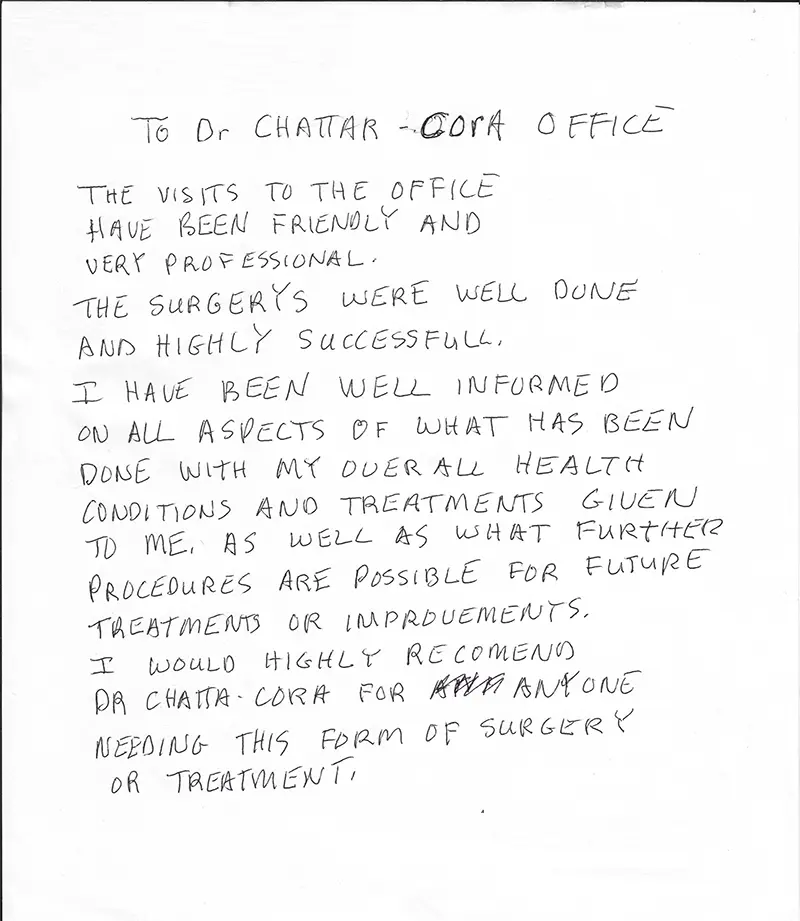 TO Dr CHATTAR - CORA OFFICE
THE VISITS TO THE OFFICE
HAVE BEEN FRIENDLY AND
VERY PROFESSIONAL.
THE SURGERYS WERE WELL DONE
AND HIGHLY SUCCESSFULL.
I HAVE BEEN WELL INFORMED
ON ALL ASPECTS OF WHAT HAS BEEN
DONE WITH MY OVER ALL HEALTH
CONDITIONS AND TREATMENTS GIVEN
TO ME. AS WELL AS WHAT FURTHER
PROCEDURES ARE POSSIBLE FOR FUTURE
TREATMENTS OR IMPROVEMENTS.
I WOULD HIGHLY RECOMEND
DR CHATTA-CORA FOR ANYONE
NEEDING THIS FORM OF SURGERY
OR TREATMENT.